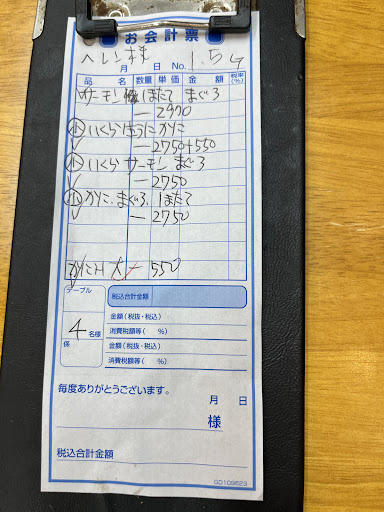 お会計票
ヘレン様
月 日 No. 1.5G
品名 数量 単価 金額 税率(%)
サーモン ほたて まぐろ
— 2970
小 いくら ほうに かにこ
— 2750+550
小 いくら サーモン まぐろ
— 2750
小 かにこ、まぐろ、ほたて
— 2750
大 550
テーブル
4名様
係
税込合計金額
金額(税抜・税込)
消費税額等( %)
金額(税抜・税込)
消費税額等( %)
毎度ありがとうございます。
月 日
様
税込合計金額
GD109623